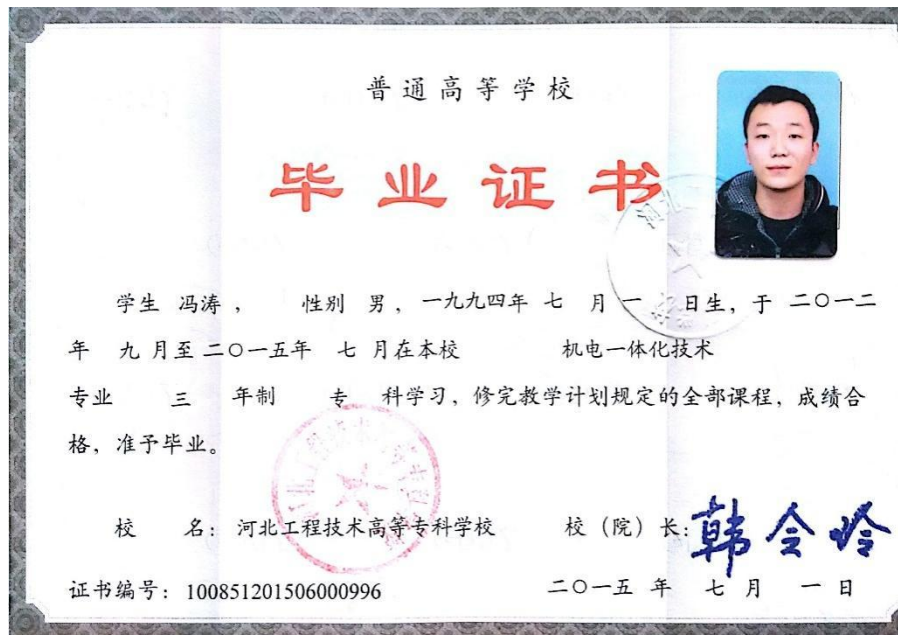 普通高等学校
毕业证书
学生 冯涛 , 性别 男 , 一九九四年 七 月 一 日生, 于 二〇一二
年 九 月至 二〇一五年 七 月在本校 机电一体化技术
专业 三 年制 专 科学习, 修完教学计划规定的全部课程, 成绩合
格, 准予毕业。
校 名: 河北工程技术高等专科学校 校 (院) 长: 韩会玲
证书编号: 100851201506000996 二〇一五 年 七 月 一 日